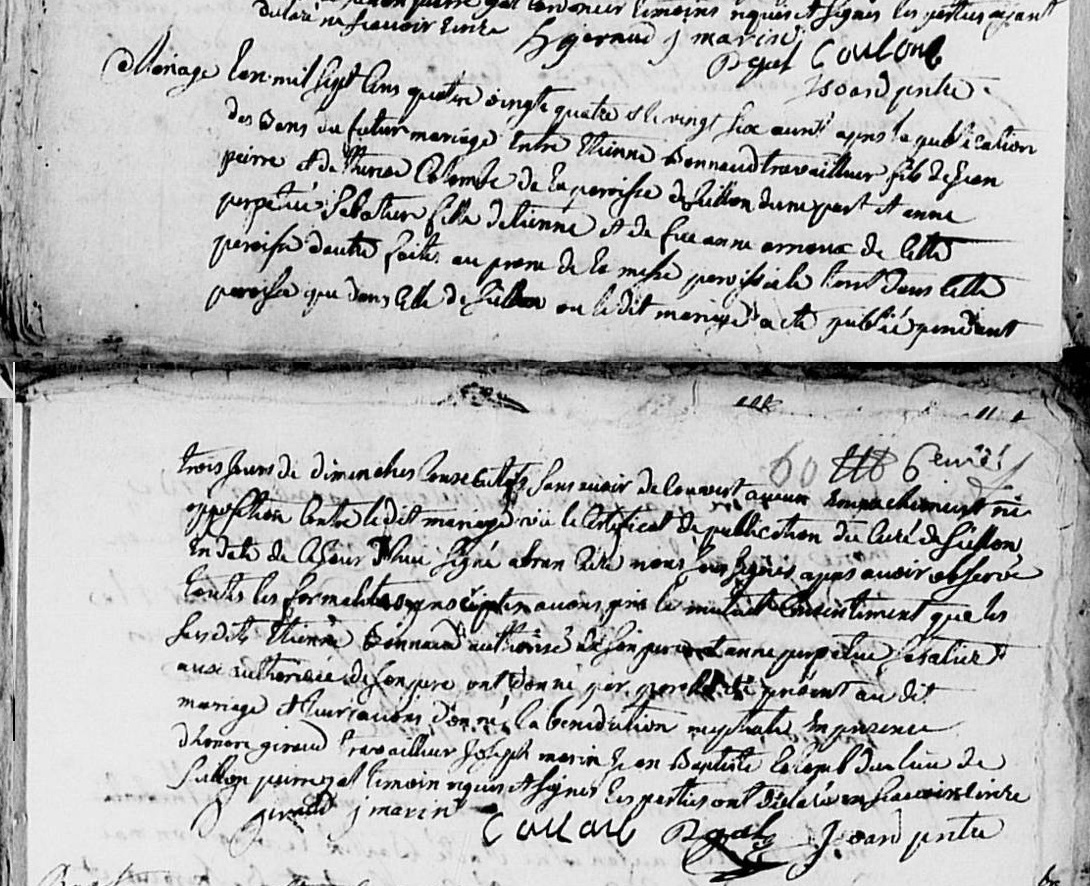 temoins requis et signés les parties ayant
declaré ne scavoir ecrire h giraud j marin
Rgal Coulomb
Isoard pretre
Mariage Lan mil sept cens quatre vingt quatre et le vingt six aout apres la publication
des bans du futur mariage Entre Etienne Bonnaud travailleur fils de jean
peirre et de Therese Colombe de la paroisse de Sillon dune part et anne
perpetue Sabatier fille detienne et de feue anne arnoux de Cette
paroisse dautre faite au prone de la messe paroissiale tant dans Cette
paroisse que dans Celle de Sillon ou le dit mariage a ete publié pendant
60 6
trois jours de dimanches Consecutifs sans avoir decouvert aucun Empechement ni
opposition Contre le dit mariage vu le Certificat de publication du Curé de Sillon
En date de Ce jour dhui signé abran Curé nous soussignés apres avoir observé
toutes les formalites prescriptes avons pris le mutuel Consentiment que les
susdits Etienne Bonnaud authorisé de son pere et anne perpetue Sabatier
aussi authorisée de son pere ont donné par paroles de présent au dit
mariage et leur avons donné la benediction nuptiale En presence
dhonoré giraud travailleur Joseph marin jean Baptiste du lieu de
Sillon peirre gal temoin requis et signés les parties ont declaré ne scavoir ecrire
h giraud j marin
Coulomb Rgal Isoard pretre